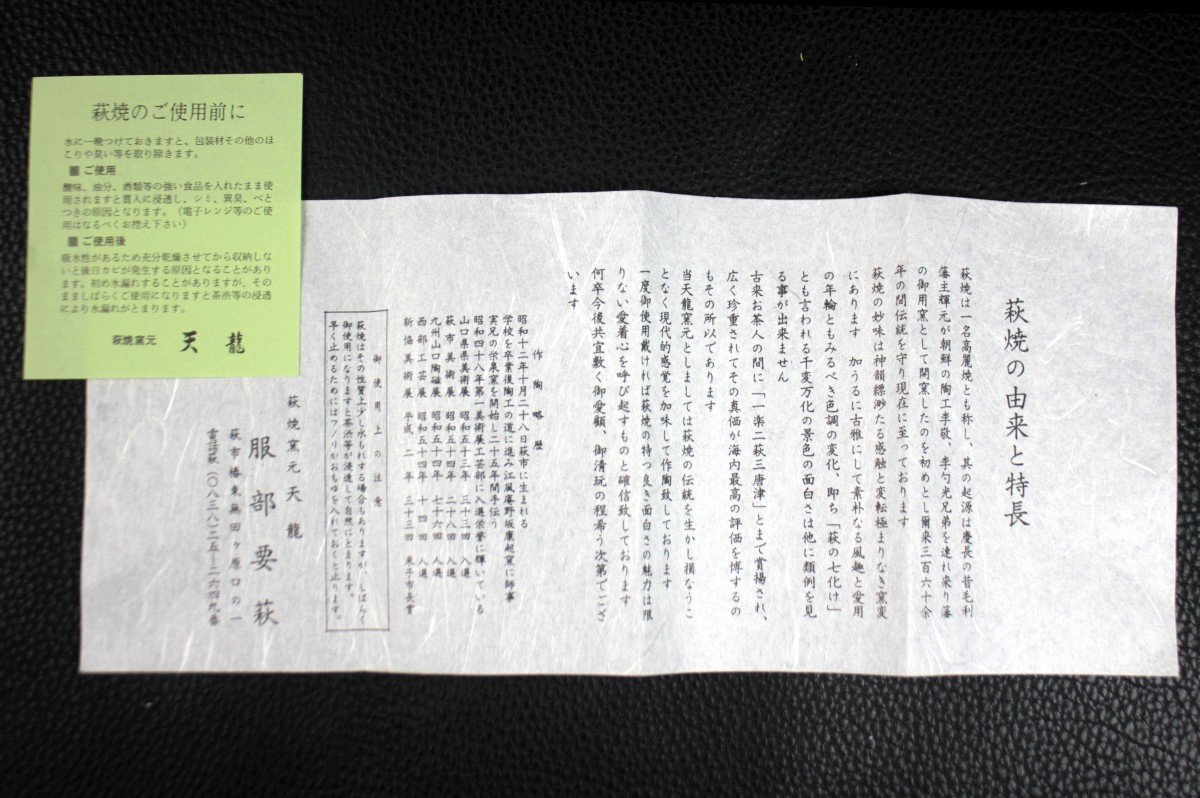 萩焼のご使用前に
水に一晩つけておきますと、包装材その他のほ
こりや臭い等を取り除きます。
■ ご使用
酸味、油分、酒類等の強い食品を入れたまま使
用されますと貫入に浸透し、シミ、異臭、べと
つきの原因となります。(電子レンジ等のご使
用はなるべくお控え下さい)
■ ご使用後
吸水性があるため充分乾燥させてから収納しな
いと後日カビが発生する原因となることがあり
ます。初め水漏れすることがありますが、その
まましばらくご使用になりますと茶渋等の浸透
により水漏れがとまります。
萩焼窯元 天龍
萩焼の由来と特長
萩焼は一名高麗焼とも称し、其の起源は慶長の昔毛利
藩主輝元が朝鮮の陶工李敬、李勺光兄弟を連れ来り藩
の御用窯として開窯したのを初めとし爾来三百六十余
年の間伝統を守り現在に至っております
萩焼の妙味は神韻縹渺たる感触と変転極まりなき窯変
にあります 加うるに古雅にして素朴なる風趣と愛用
の年輪ともみるべき色調の変化、即ち「萩の七化け」
とも言われる千変万化の景色の面白さは他に類例を見
る事が出来ません
古来お茶人の間に「一楽二萩三唐津」とまで賞揚され、
広く珍重されてその真価が海内最高の評価を博するの
もその所以であります
当天龍窯元としましては萩焼の伝統を生かし損なうこ
となく現代的感覚を加味して作陶致しております
一度御使用戴ければ萩焼の持つ良き面白さの魅力は限
りない愛着心を呼び起すものと確信致しております
何卒今後共宜敷く御愛顧、御清玩の程希う次第でござ
います
作陶略歴
昭和十二年十月二十八日萩市に生まれる
学校を卒業後陶工の道に進み江風庵野坂康起窯に師事
実兄の栄泉窯を開始し二十五年間手伝う
昭和四十八年第一美術展工芸部に入選栄誉に輝いている
山口県美術展 昭和五十三年 三十二回 入選
萩市美術展 昭和五十四年 二十八回 入選
九州山口陶磁展 昭和五十四年 七十六回 入選
西部工芸展 昭和五十四年 十四回 入選
新協美術展 平成二年 三十三回 米子市長賞
御使用上の注意
萩焼はその性質上少し水もれする場合もありますが、しばらく
御使用になりますと茶渋等が浸透して自然にとまります。
早く止めるためにはフノリかおもゆを入れておくと止ります。
萩焼窯元天龍
服部要萩
萩市椿東無田ヶ原口の一
電話萩(〇八三八)二五-二六四九番